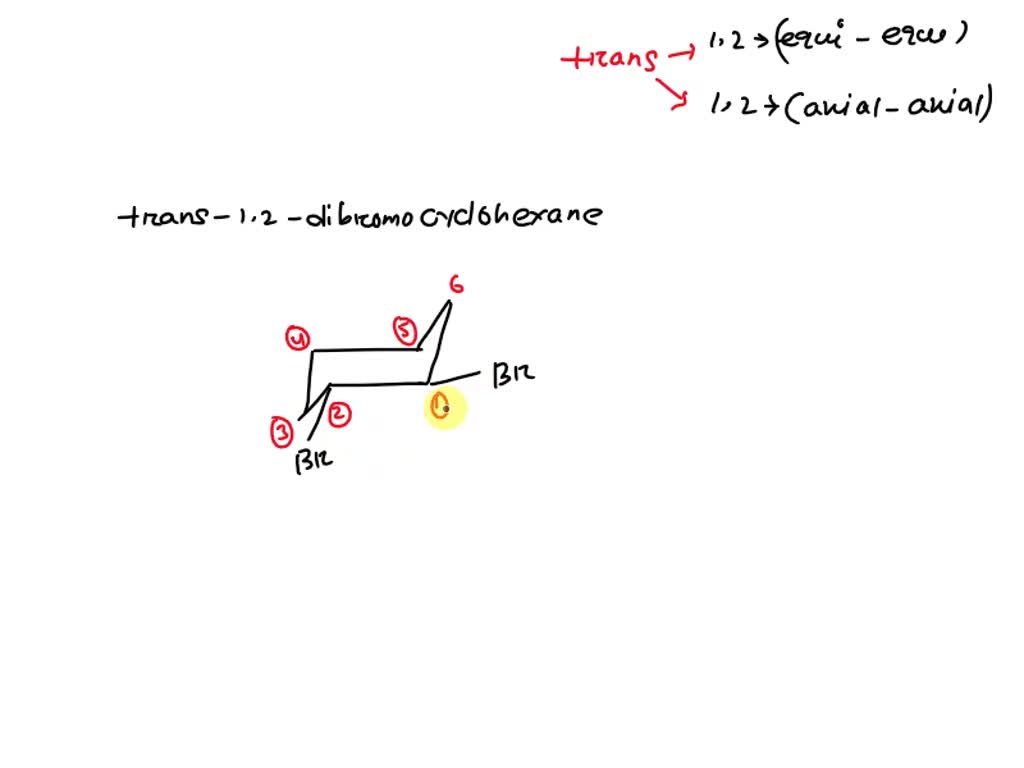 trans → 1,2 → (equi - equ)
1,2 → (axial - axial)
trans - 1,2 - dibromocyclohexane
6
4 5
Br
1
2
3
Br